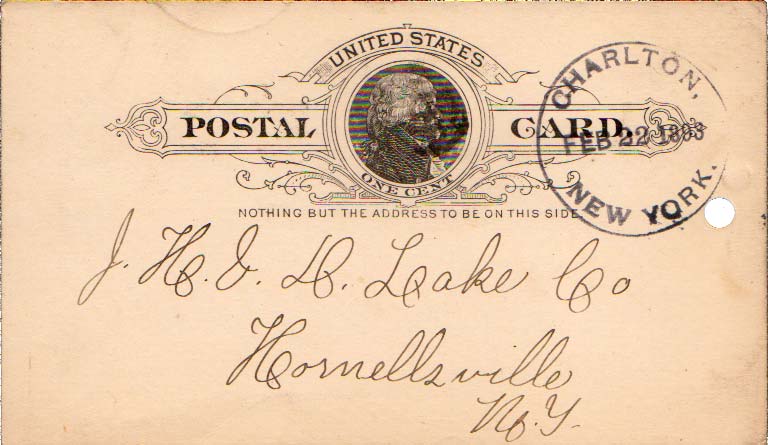 UNITED STATES
POSTAL CARD.
ONE CENT
NOTHING BUT THE ADDRESS TO BE ON THIS SIDE
CHARLTON,
FEB 22 1893
NEW YORK.
Lake Co
Hornellsville
N.Y.